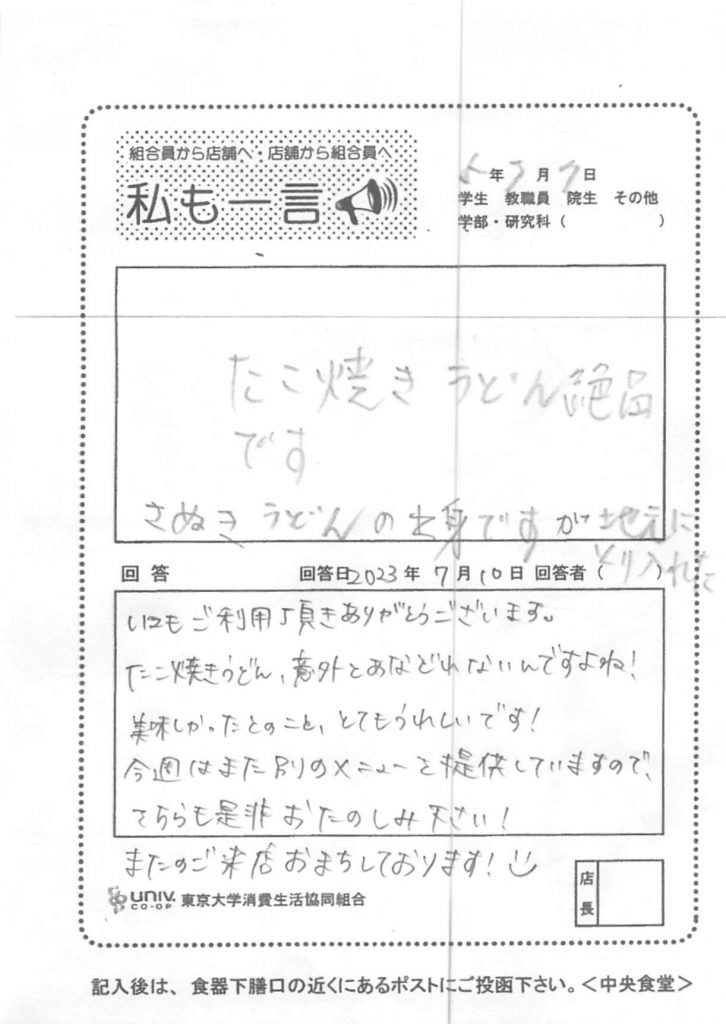 組合員から店舗へ・店舗から組合員へ
私も一言
5年7月7日
学生 教職員 院生 その他
学部・研究科( )
たこ焼きうどん絶品
です
さぬきうどんの出身ですが地元に
とり入れた
回答 回答日2023年7月10日 回答者( )
いつもご利用頂きありがとうございます。
たこ焼きうどん、意外とあなどれないんですよね!
美味しかったとのこと、とてもうれしいです!
今週はまた別のメニューを提供していますので、
そちらも是非おたのしみ下さい!
またのご来店おまちしております!
店長
UNIV.
CO-OP 東京大学消費生活協同組合
記入後は、食器下膳口の近くにあるポストにご投函下さい。<中央食堂>